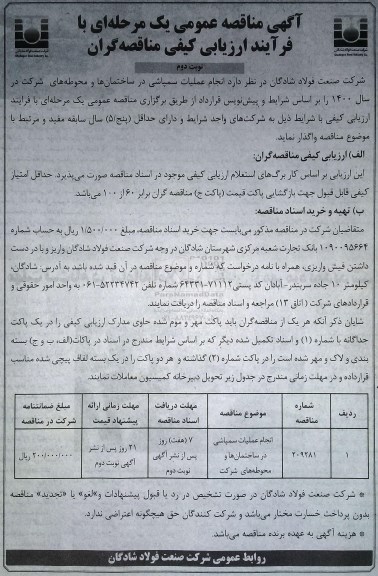 آگهی مناقصه عمومی یک مرحله‌ای با
فرآیند ارزیابی کیفی مناقصه‌گران
نوبت دوم
شرکت صنعت فولاد شادگان در نظر دارد انجام عملیات سمپاشی در ساختمان‌ها و محوطه‌های شرکت در
سال ۱۴۰۰ را بر اساس شرایط و پیش‌نویس قرارداد از طریق برگزاری مناقصه عمومی یک مرحله‌ای با فرآیند
ارزیابی کیفی با شرایط ذیل به شرکت‌های واجد شرایط و دارای حداقل (پنج/۵) سال سابقه مفید و مرتبط با
موضوع مناقصه واگذار نماید.
الف) ارزیابی کیفی مناقصه‌گران:
این ارزیابی بر اساس کار برگ‌های استعلام ارزیابی کیفی موجود در اسناد مناقصه صورت می‌پذیرد. حداقل امتیاز
کیفی قابل قبول جهت بازگشایی پاکت قیمت (پاکت ج) مناقصه گران برابر ۶۰ از ۱۰۰ می‌باشد.
ب) تهیه و خرید اسناد مناقصه:
متقاضیان شرکت در مناقصه مذکور می‌بایست جهت خرید اسناد مناقصه، مبلغ ۱/۵۰۰/۰۰۰ ریال به حساب شماره
۱۰۹۰۰۹۵۶۶۴ بانک تجارت شعبه مرکزی شهرستان شادگان در وجه شرکت صنعت فولاد شادگان واریز و با در دست
داشتن فیش واریزی، همراه با نامه درخواست که شماره و موضوع مناقصه در آن قید شده باشد به آدرس: شادگان،
کیلومتر ۱۰ جاده سربندر-آبادان کد پستی ۷۱۱۱۲-۶۴۳۳۱ شماره تلفن ۵۲۲۳۴۷۴۲-۰۶۱ به واحد امور حقوقی و
قراردادهای شرکت (اتاق ۱۳) مراجعه و اسناد مناقصه را دریافت نمایند.
شایان ذکر آنکه هر یک از مناقصه‌گران باید پاکت مهر و موم شده حاوی مدارک ارزیابی کیفی را در یک پاکت
جداگانه با شماره (۱) و اسناد تکمیل شده دیگر که بر اساس شرایط مندرج در اسناد در پاکات (الف، ب و ج) بسته
بندی و لاک و مهر شده است را در پاکت شماره (۲) گذاشته و هر دو پاکت را در یک بسته لفاف پیچی شده مناسب
قرارداده و در مهلت زمانی مندرج در جدول زیر تحویل دبیرخانه کمیسیون معاملات نمایند.
ردیف شماره مناقصه موضوع مناقصه مهلت دریافت اسناد مناقصه مهلت زمانی ارائه پیشنهاد قیمت مبلغ ضمانتنامه شرکت در مناقصه
۱ ۲۰۹۲۸۱ انجام عملیات سمپاشی در ساختمان‌ها و محوطه‌های شرکت ۷ (هفت) روز پس از نشر آگهی نوبت دوم ۲۱ روز پس از نشر آگهی نوبت دوم ۲۰۰/۰۰۰/۰۰۰ ریال
* شرکت صنعت فولاد شادگان در صورت تشخیص در رد یا قبول پیشنهادات و «لغو» یا «تجدید» مناقصه
بدون پرداخت خسارت مختار می‌باشد و شرکت کنندگان حق هیچگونه اعتراضی ندارد.
* هزینه آگهی به عهده برنده مناقصه می‌باشد.
روابط عمومی شرکت صنعت فولاد شادگان